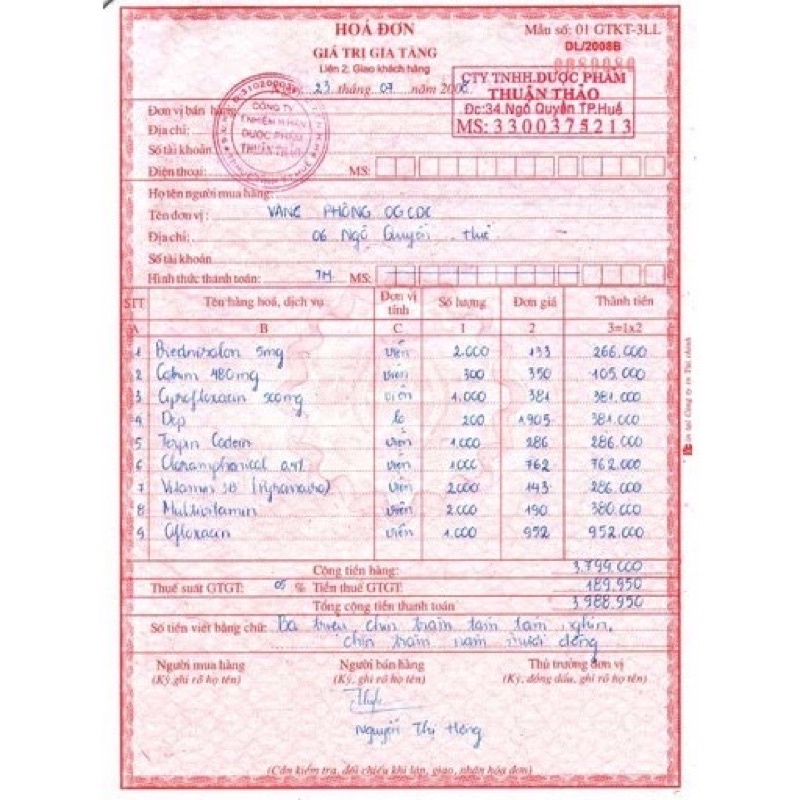 HOÁ ĐƠN
GIÁ TRỊ GIA TĂNG
Mẫu số: 01 GTKT-3LL
DL/2008B
Liên 2, Giao khách hàng
0080080
23 tháng 07 năm 2008
CTY TNHH.DƯỢC PHẨM
THUẬN THẢO
Đc:34.Ngô Quyền TP.Huế
MS: 3300375213
CÔNG TY
DƯỢC PHẨM
THUẬN THẢO
Đơn vị bán hàng
Địa chỉ:
Số tài khoản
Điện thoại: MS:
Họ tên người mua hàng:
Tên đơn vị: VANG PHÒNG OGCDC
Địa chỉ: 06 Ngô Quyền - Huế
Số tài khoản
Hình thức thanh toán: TM MS:
STT Tên hàng hoá, dịch vụ Đơn vị tính Số lượng Đơn giá Thành tiền
A B C 1 2 3=1x2
1 Prednisolon 5mg viên 2.000 133 266.000
2 Cotrim 480mg viên 300 350 105.000
3 Cyprofloxacin 500mg viên 1.000 381 381.000
4 Dep lọ 200 1905 381.000
5 Terpin Codein viên 1.000 286 286.000
6 Cloramphenicol 0,4% viên 1000 762 762.000
7 Vitamin 3B viên 2000 143 286.000
8 Multivitamin viên 2.000 190 380.000
9 Ofloxacin viên 1.000 952 952.000
Cộng tiền hàng: 3.799.000
Thuế suất GTGT: 05 % Tiền thuế GTGT: 189.950
Tổng cộng tiền thanh toán 3.988.950
Số tiền viết bằng chữ: Ba triệu, chín trăm tám tám nghìn,
chín trăm năm mươi đồng
Người mua hàng Người bán hàng Thủ trưởng đơn vị
(Ký, ghi rõ họ tên) (Ký, ghi rõ họ tên) (Ký, đóng dấu, ghi rõ họ tên)
Nguyễn Thị Hồng
(Cần kiểm tra, đối chiếu khi lập, giao, nhận hóa đơn)